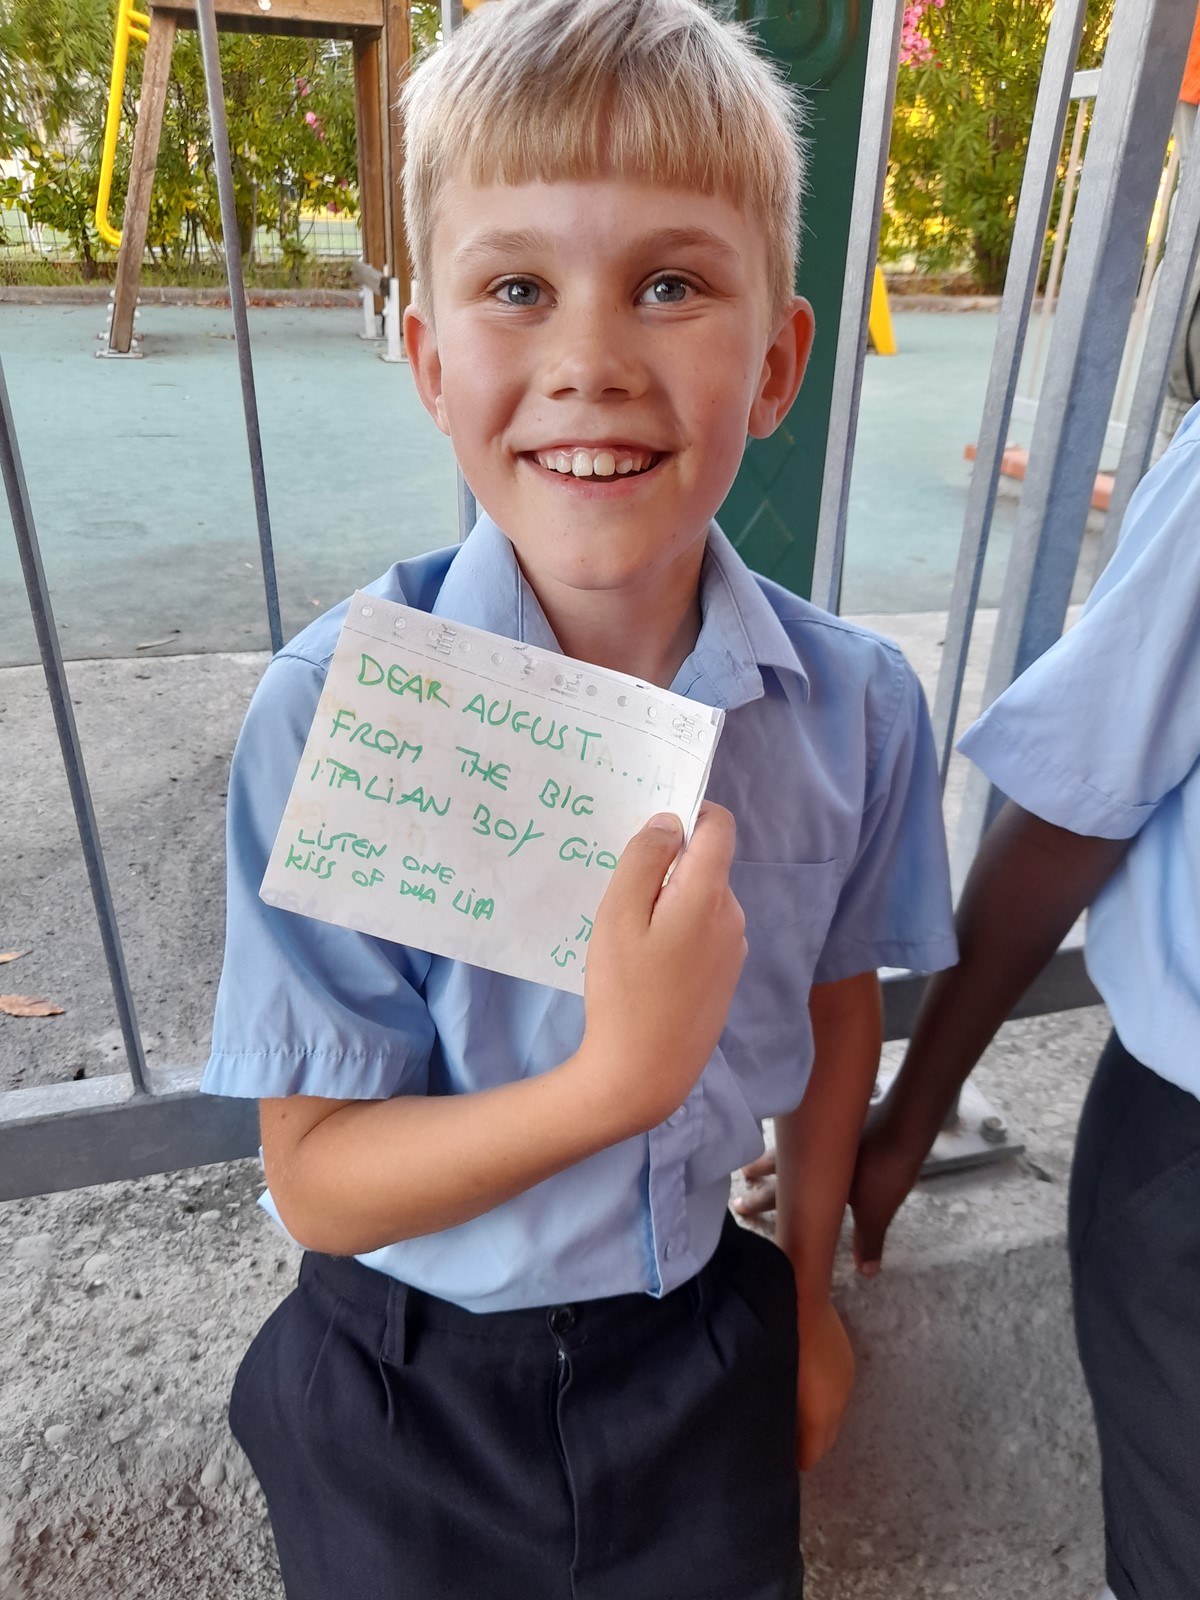 DEAR AUGUST.....
FROM THE BIG
ITALIAN BOY GIO
LISTEN ONE
KISS OF DUA LIPA
IS